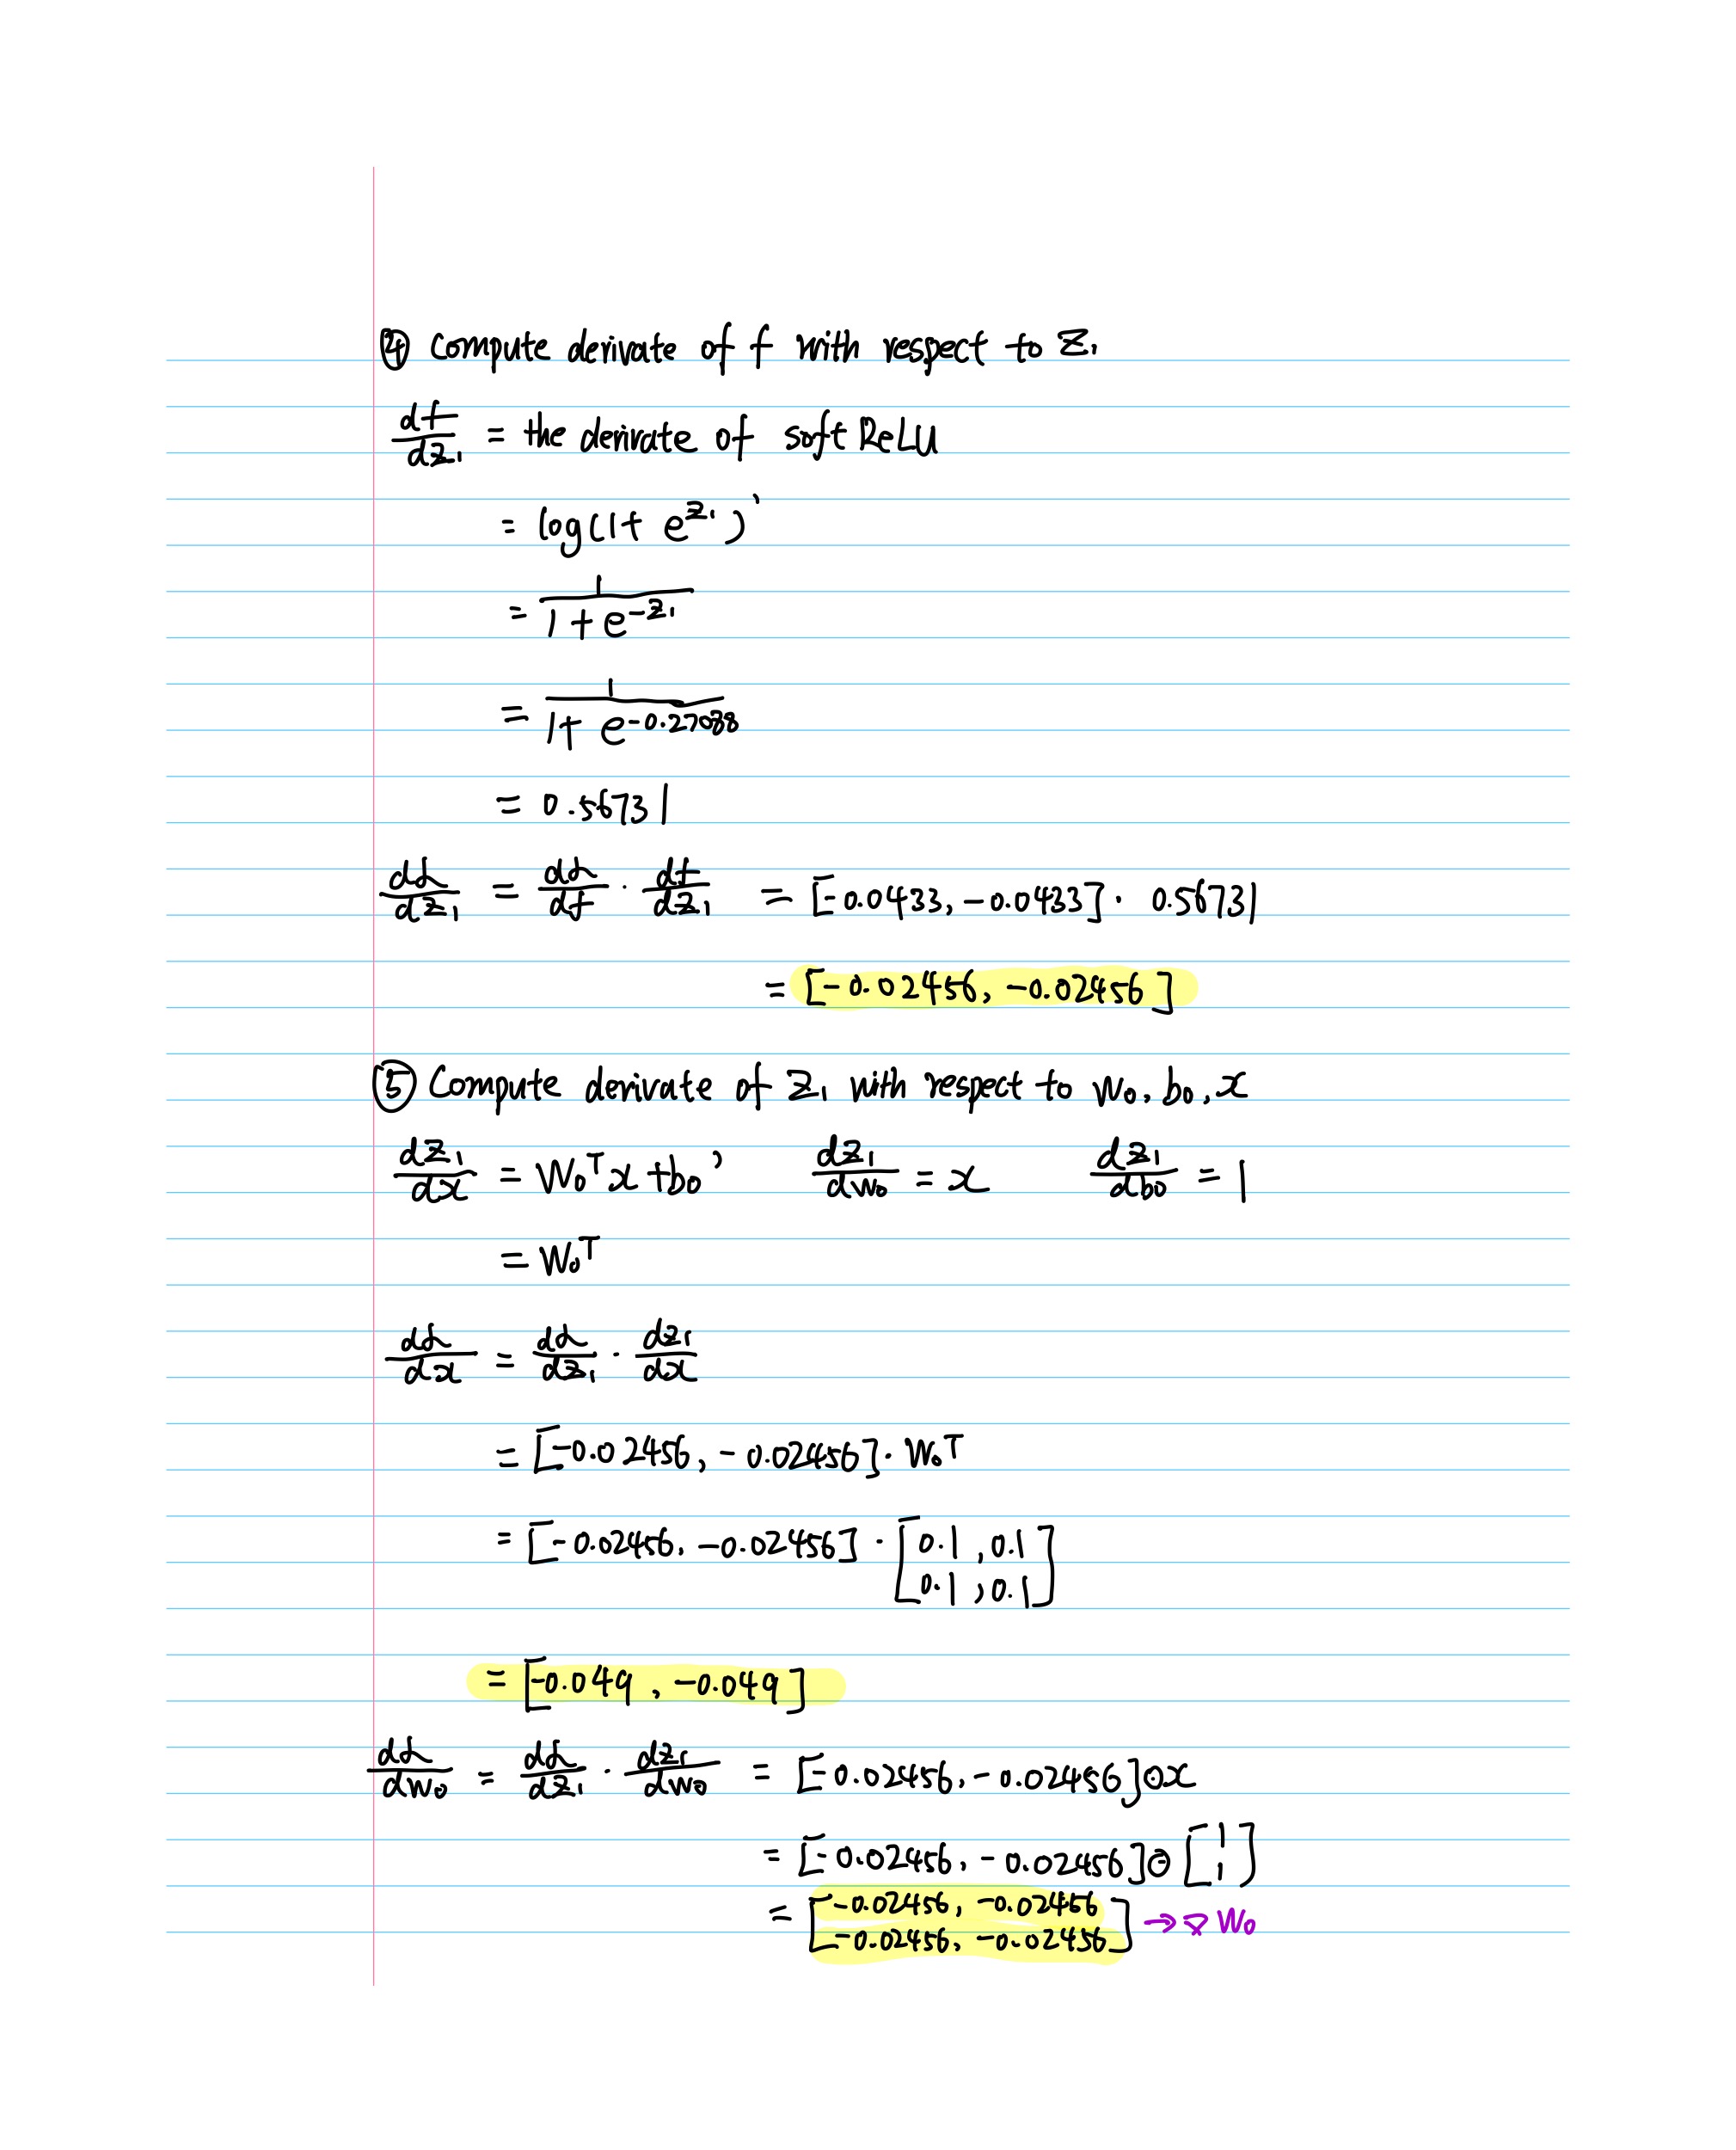 ④ Compute derivate of f with respect to Z₁
df/dZ₁ = the derivate of soft ReLU
= log(1+ e^Z₁)'
= 1/(1+e^-Z₁)
= 1/(1+ e^-0.27088)
= 0.56731
dL/dZ₁ = dL/df · df/dZ₁ = [-0.0433, -0.0433] · 0.56731
= [-0.02456, -0.02456]
⑤ Compute derivate of Z₁ with respect to W₀, b₀, x
dZ₁/dx = W₀ᵀx+b₀' dZ₁/dW₀ = x dZ₁/db₀ = 1
= W₀ᵀ
dL/dx = dL/dZ₁ · dZ₁/dx
= [-0.02456, -0.02456] · W₀ᵀ
= [-0.02456, -0.02456] · [0.1, 0.1
0.1, 0.1]
= [-0.049, -0.049]
dL/dW₀ = dL/dZ₁ · dZ₁/dW₀ = [-0.02456, -0.02456]⊙x
= [-0.02456, -0.02456]⊙[1
1]
= [-0.02456, -0.02456
-0.02456, -0.02456] → ∇ W₀